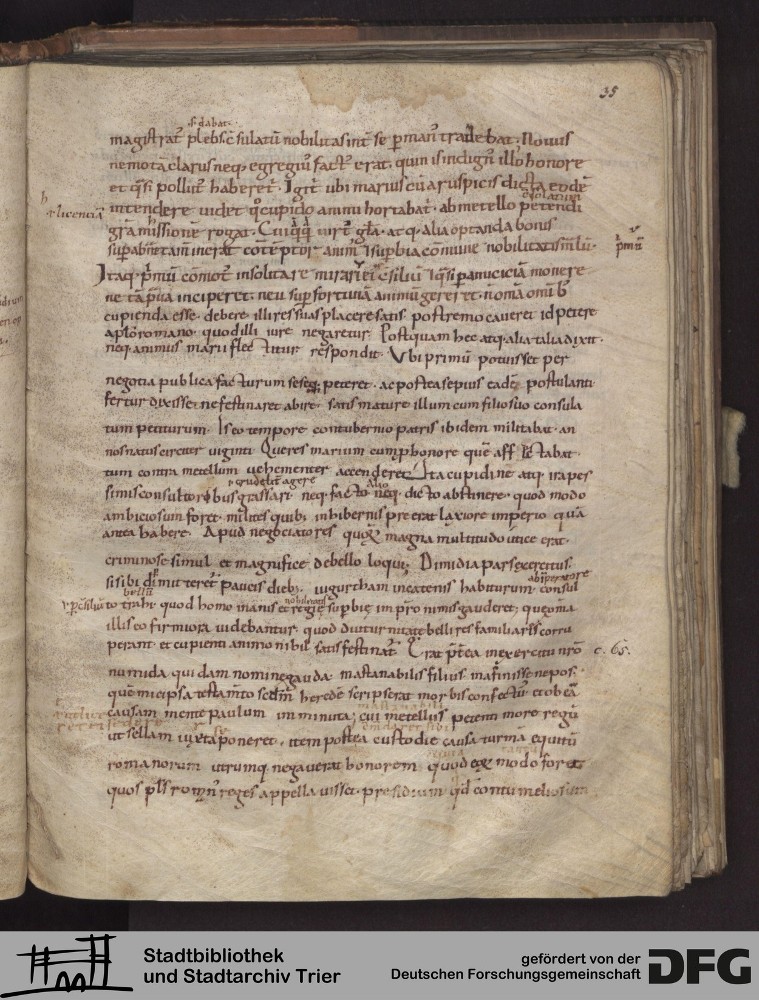 35
s. dabat.
magistrat' plebs c̄sulatū nobilitas int' se p man' tradebat. Novus
nemo tā clarus neq; egregiū fact' erat. quin is indign' illo honore
et q̄si pollut' haberet'. Igit' ubi marius
intendere videt q̄ cupido animi hortabat'. ab metello petendi
gra missionē rogat. atq; alia optanda bonis
comune nobilitatis malū.
Itaq; p̄mū cōmot' insolita re mirari
ne tā p̄va inciperet. neu sup fortunā animū gereret. n̄ oma omīb;
cupienda esse. debere illi res suas placere satis. postremo caveret id petere
a pło romano. quod illi iure negaretur. Postquam hec atq; alia talia dixit.
neq; animus marii flectitur respondit. Ubi primū potuisset per
negotia publica facturum sese q; peteret. ac postea sepius eadē postulanti
fertur dixisse ne festinaret abire. satis mature illum cum filio suo consula
tum petiturum. Is eo tempore contubernio patris ibidem militabat. an
nos natus circiter viginti. Que res marium cum p honore quē affectabat.
tum contra metellum vehementer accenderet. Ita cupidine atq; ira pes
simis consultorib; grassari. neq; facto neq; dicto abstinere. quod modo
ambitiosum foret. milites quib; in hibernis preerat laxiore imperio quā
antea habere. Apud negociatores quor' magna multitudo utice erat.
criminose simul et magnifice de bello loqui. Dimidia pars exercitus
si sibi dimitteret' paucis dieb; iugurtham in catenis habiturum. ab īperatore consul
to trahi quod homo inanis et regie supbie imperio nimis gauderet; que oma
illis eo firmiora videbantur. quod diuturnitate belli res familiares corru
perant. et cupienti animo nihil satis festinat'. Erat p̄tea in exercitu nr̄o
c. 65.
numida quidam nomine gauda. mastanabilis filius. masinisse nepos.
quē micipsa testam̄to sec̄dm̄ heredē scripserat morbis confectus et ob eā
causam mente paulum inminuta; cui metellus petenti more regū
ut sellam iuxta poneret. item postea custodie causa turmā equitū
romanorum utrumq; negaverat honorem quod eor' modo foret
quos pł̄s romn̄ reges appellavisset. presidium q̄d contumeliosum
Stadtbibliothek
und Stadtarchiv Trier
gefördert von der
Deutschen Forschungsgemeinschaft
DFG